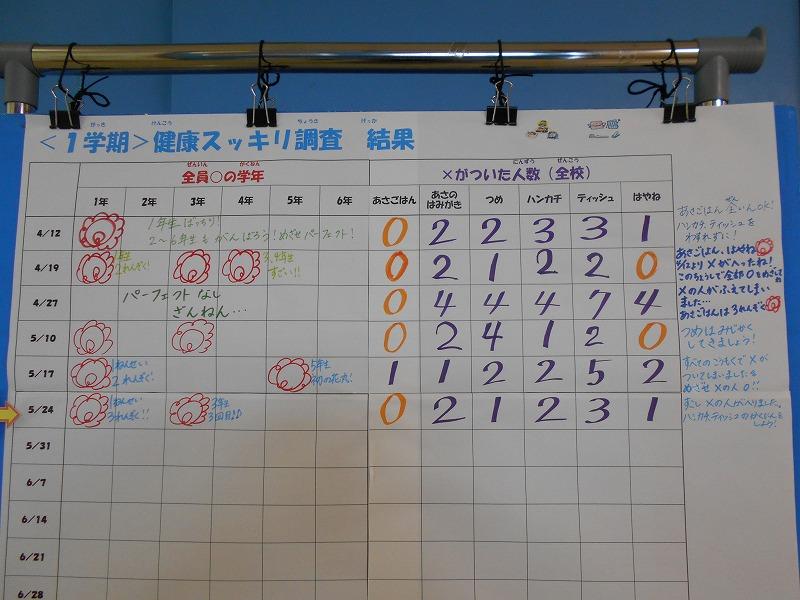 ＜１学期＞健康スッキリ調査　結果
がっき けんこう ちょうさ けっか
全員○の学年
ぜんいん がくねん
×がついた人数（全校）
にんずう ぜんこう
1年 2年 3年 4年 5年 6年 あさごはん あさのはみがき つめ ハンカチ ティッシュ はやね
4/12 0 2 2 3 3 1
1年生 ばっちり!
2〜6年生も がんばろう!めざせパーフェクト!
あさごはん 全いんOK!
ハンカチ、ティッシュを
わすれずに!
4/19 0 2 1 2 2 0
1年生
2れんぞく!
3,4年生
すごい!!
あさごはん、はやね
4/12より ×が入ったね!
このちょうしで全部0をめざしてね
4/27 0 4 4 4 7 4
パーフェクト なし
ざんねん…
×の人がふえてしまい
ました…
あさごはんは3れんぞく
5/10 0 2 4 1 2 0
つめは みじかく
してきましょう!
5/17 1 1 2 2 5 2
1ねんせい
2れんぞく!
5年生
初の花丸!
すべてのこうもくで×が
ついてしまいました
めざせ ×の人 0!!
5/24 0 2 1 2 3 1
1ねんせい
3れんぞく!!
3年生
3回目♪♪
ハンカチ、ティッシュの
5/31
6/7
6/14
6/21
6/28